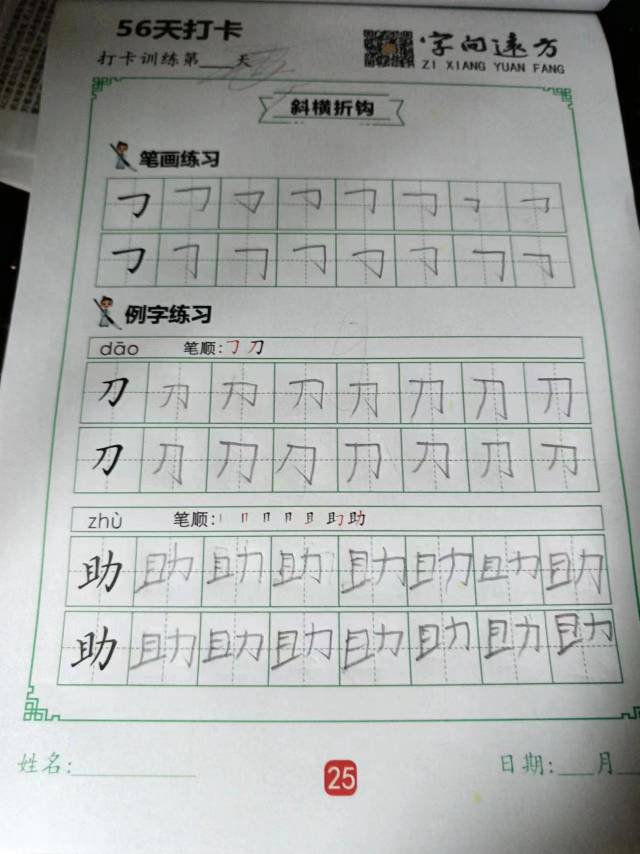 56天打卡
打卡训练第___天
字向远方
ZI XIANG YUAN FANG
斜横折钩
笔画练习
例字练习
dāo 笔顺: 刀
刀 刀 刀 刀 刀 刀 刀 刀
刀 刀 刀 刀 刀 刀 刀 刀
zhù 笔顺: 助
助 助 助 助 助 助 助 助
助 助 助 助 助 助 助 助
姓名:
25
日期:___月